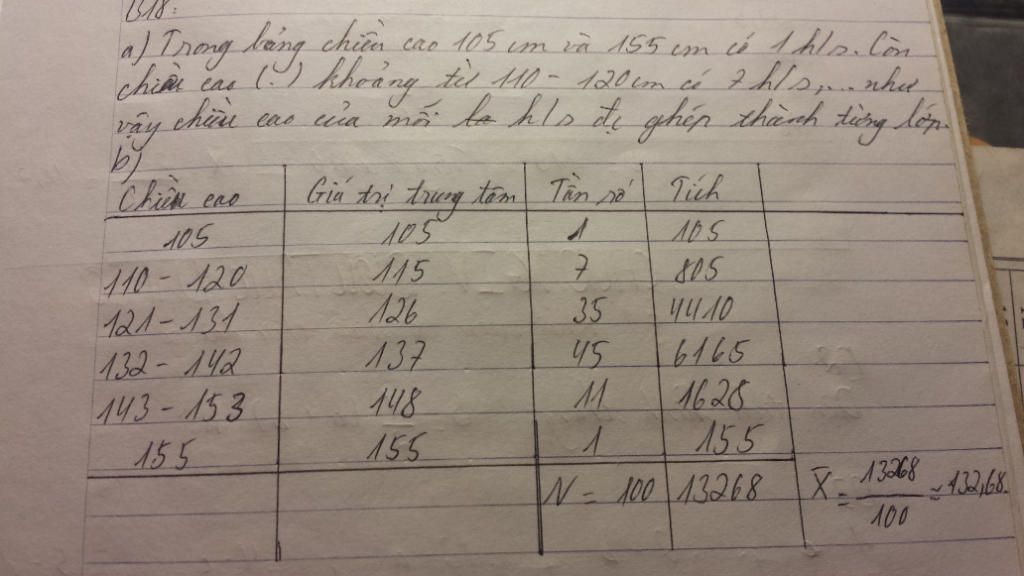 B18:
a) Trong bảng chiều cao 105 cm và 155 cm có 1 h/s. Còn
chiều cao (.) khoảng từ 110 - 120 cm có 7 h/s,... như
vậy chiều cao của mỗi h/s đc ghép thành từng lớp.
b)
Chiều cao Giá trị trung tâm Tần số Tích
105 105 1 105
110 - 120 115 7 805
121 - 131 126 35 4410
132 - 142 137 45 6165
143 - 153 148 11 1628
155 155 1 155
N = 100 13268 X̄ = 13268/100 ≈ 132,68.